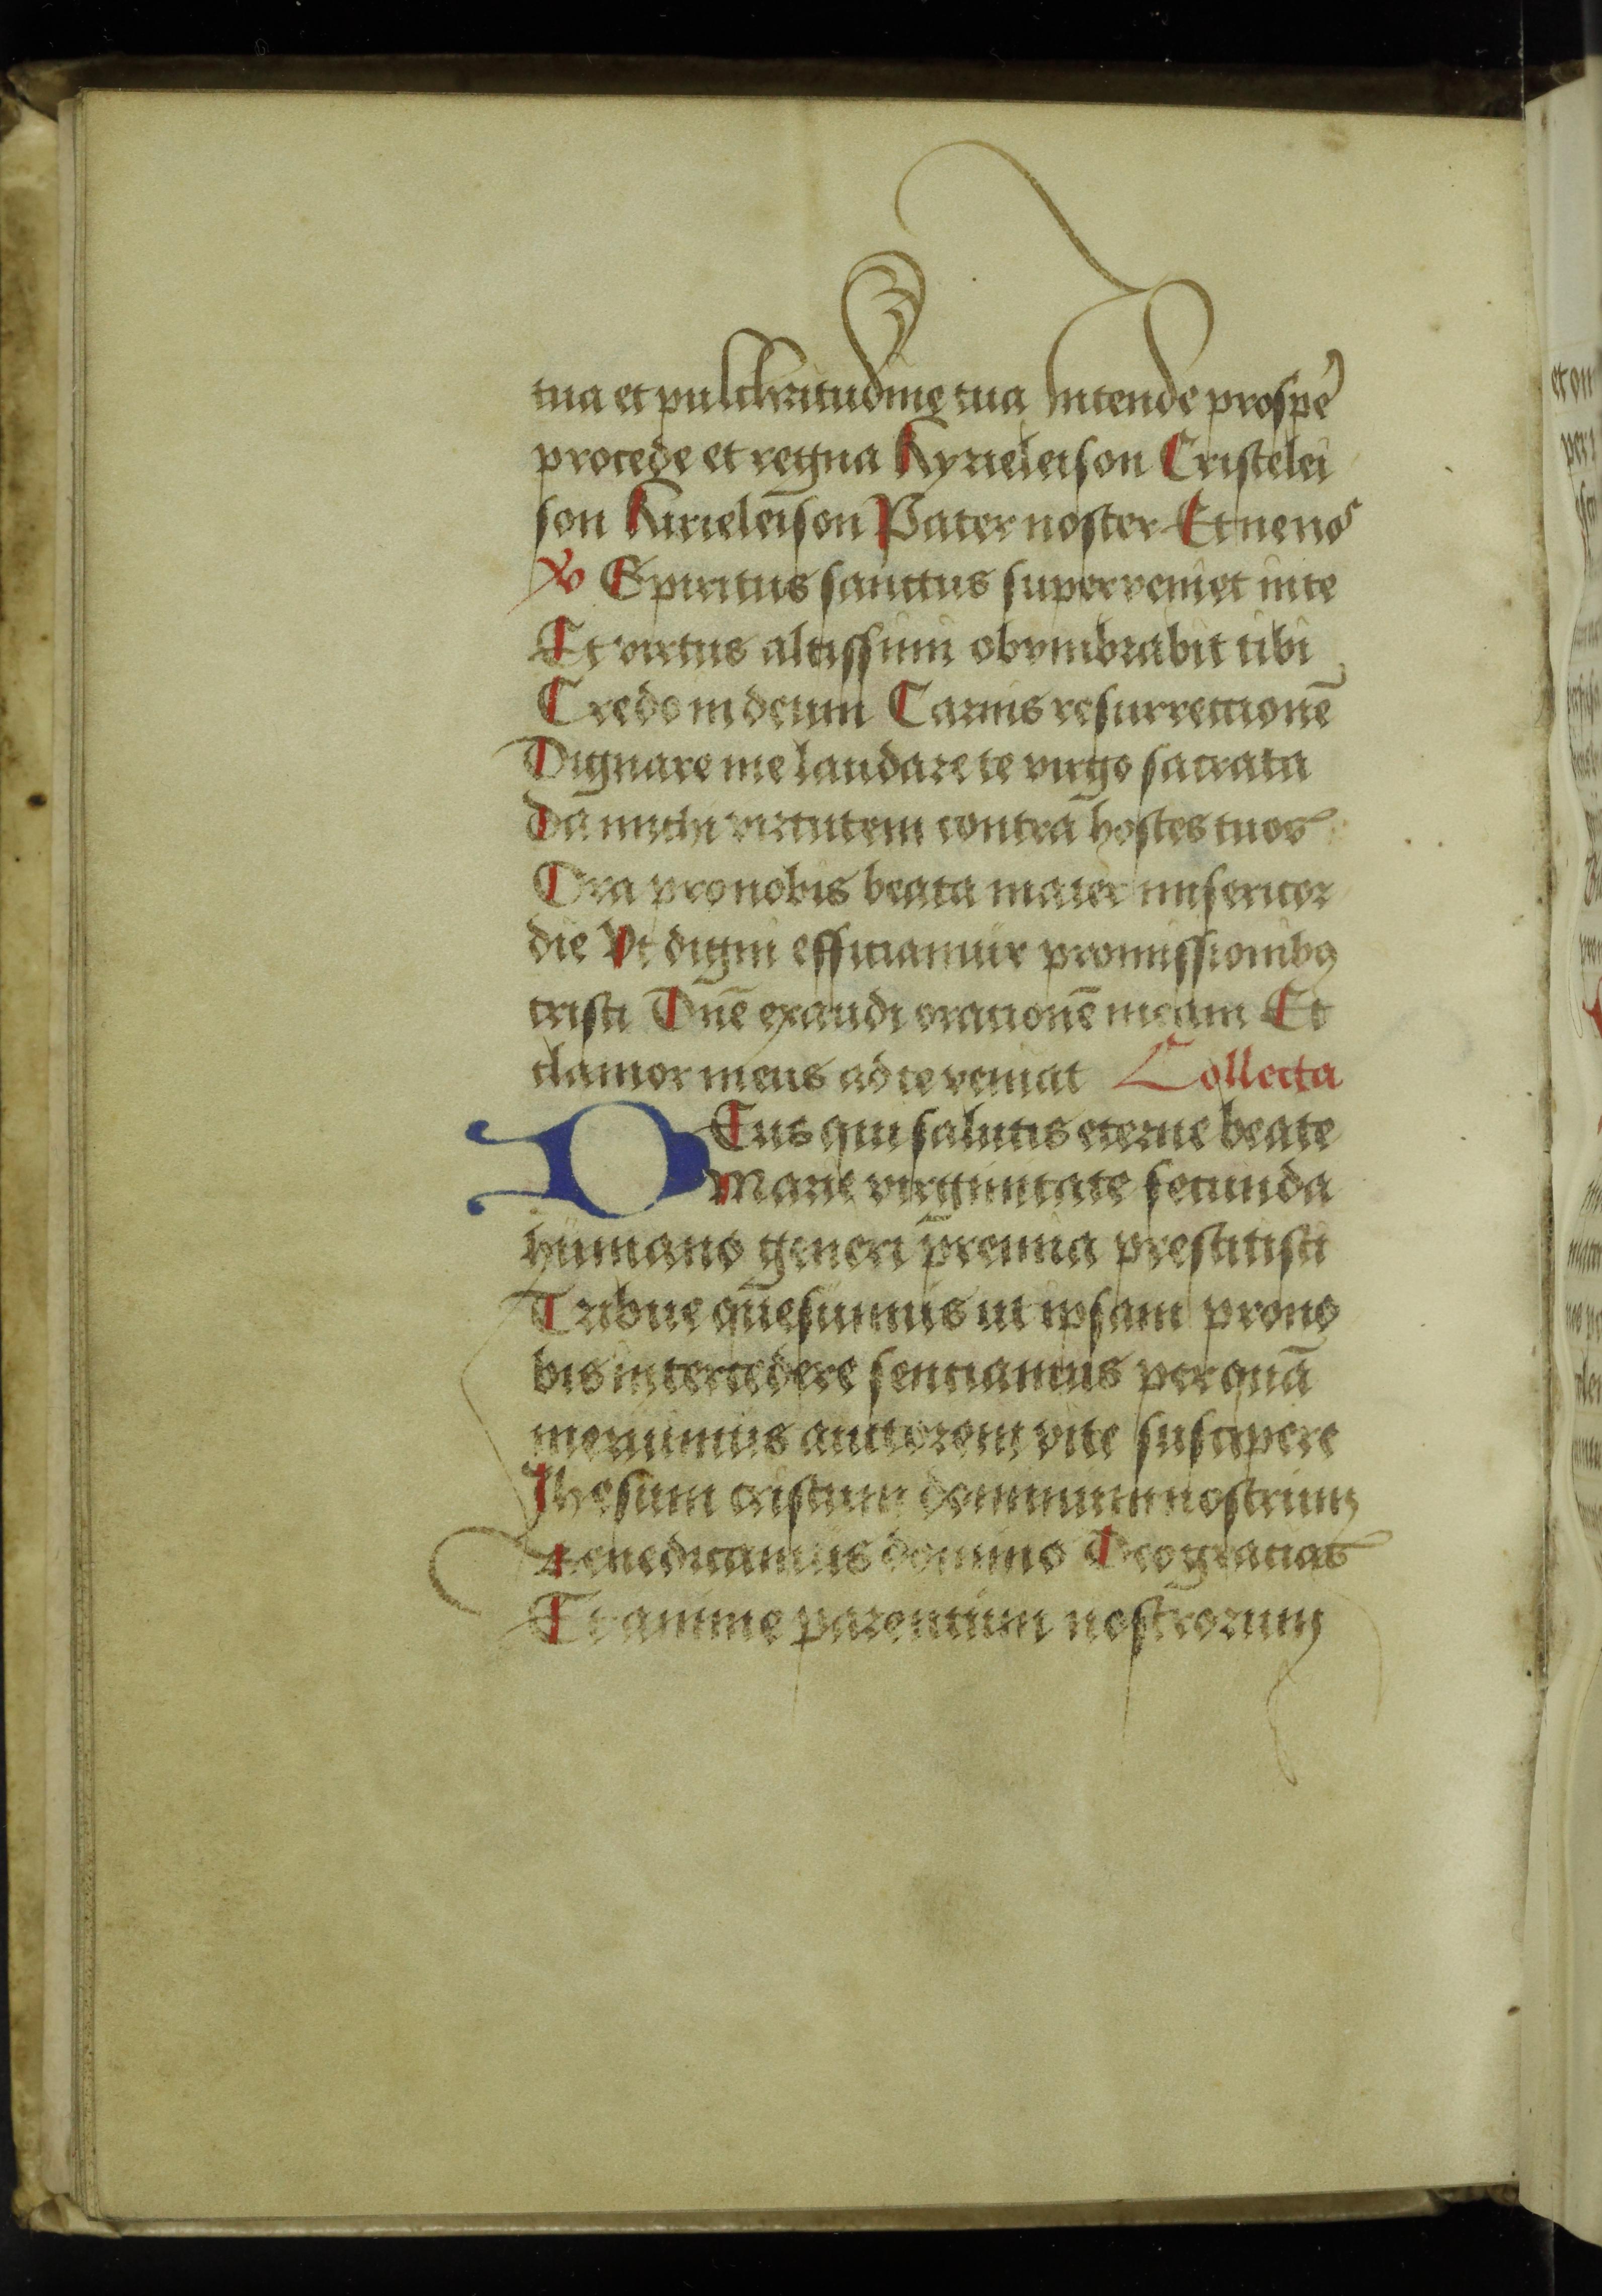 tua et pulchritudine tua Intende prospe
procede et regna Kyrieleison Cristelei
son Kirieleison Pater noster Et ne nos
V Spiritus sanctus superveniet in te
Et virtus altissimi obvmbrabit tibi
Credo in deum Carnis resurrectionē
Dignare me laudare te virgo sacrata
da michi virtutem contra hostes tuos
Ora pro nobis beata mater misericor
die Vt digni efficiamur promissionibꝫ
cristi Dn̄e exaudi orationē meam Et
clamor meus ad te veniat Collecta
DEus qui salutis eterne beate
Marie virginitate fecunda
humano generi premia prestitisti
Tribue quesumus ut ipsam pro no
bis intercedere sentiamus per quā
meruimus auctorem vite suscipere
Jhesum cristum dominum nostrum
Benedicamus domino Deo gracias
Et anime parentum nostrorum